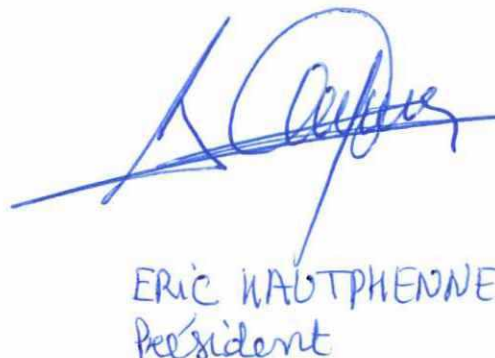 ERIC HAUTPHENNE
Président